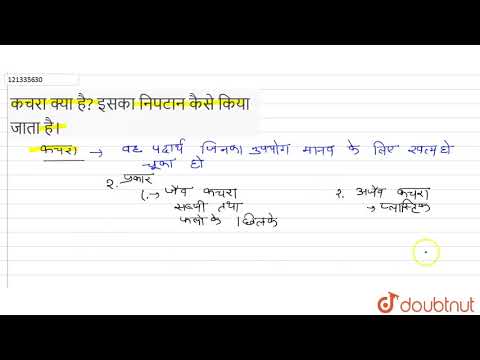 121335630
कचरा क्या है? इसका निपटान कैसे किया
जाता है।
कचरा → वह पदार्थ जिनका उपयोग मानव के लिए खत्म हो
चूका हो
2. प्रकार
1. → जैव कचरा
सब्जी तथा
फलो के छिलके
2. अजैव कचरा
→ प्लास्टिक
doubtnut